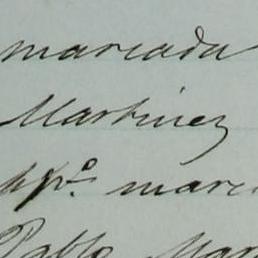 marcada
Martinez
marc
Pablo Mar